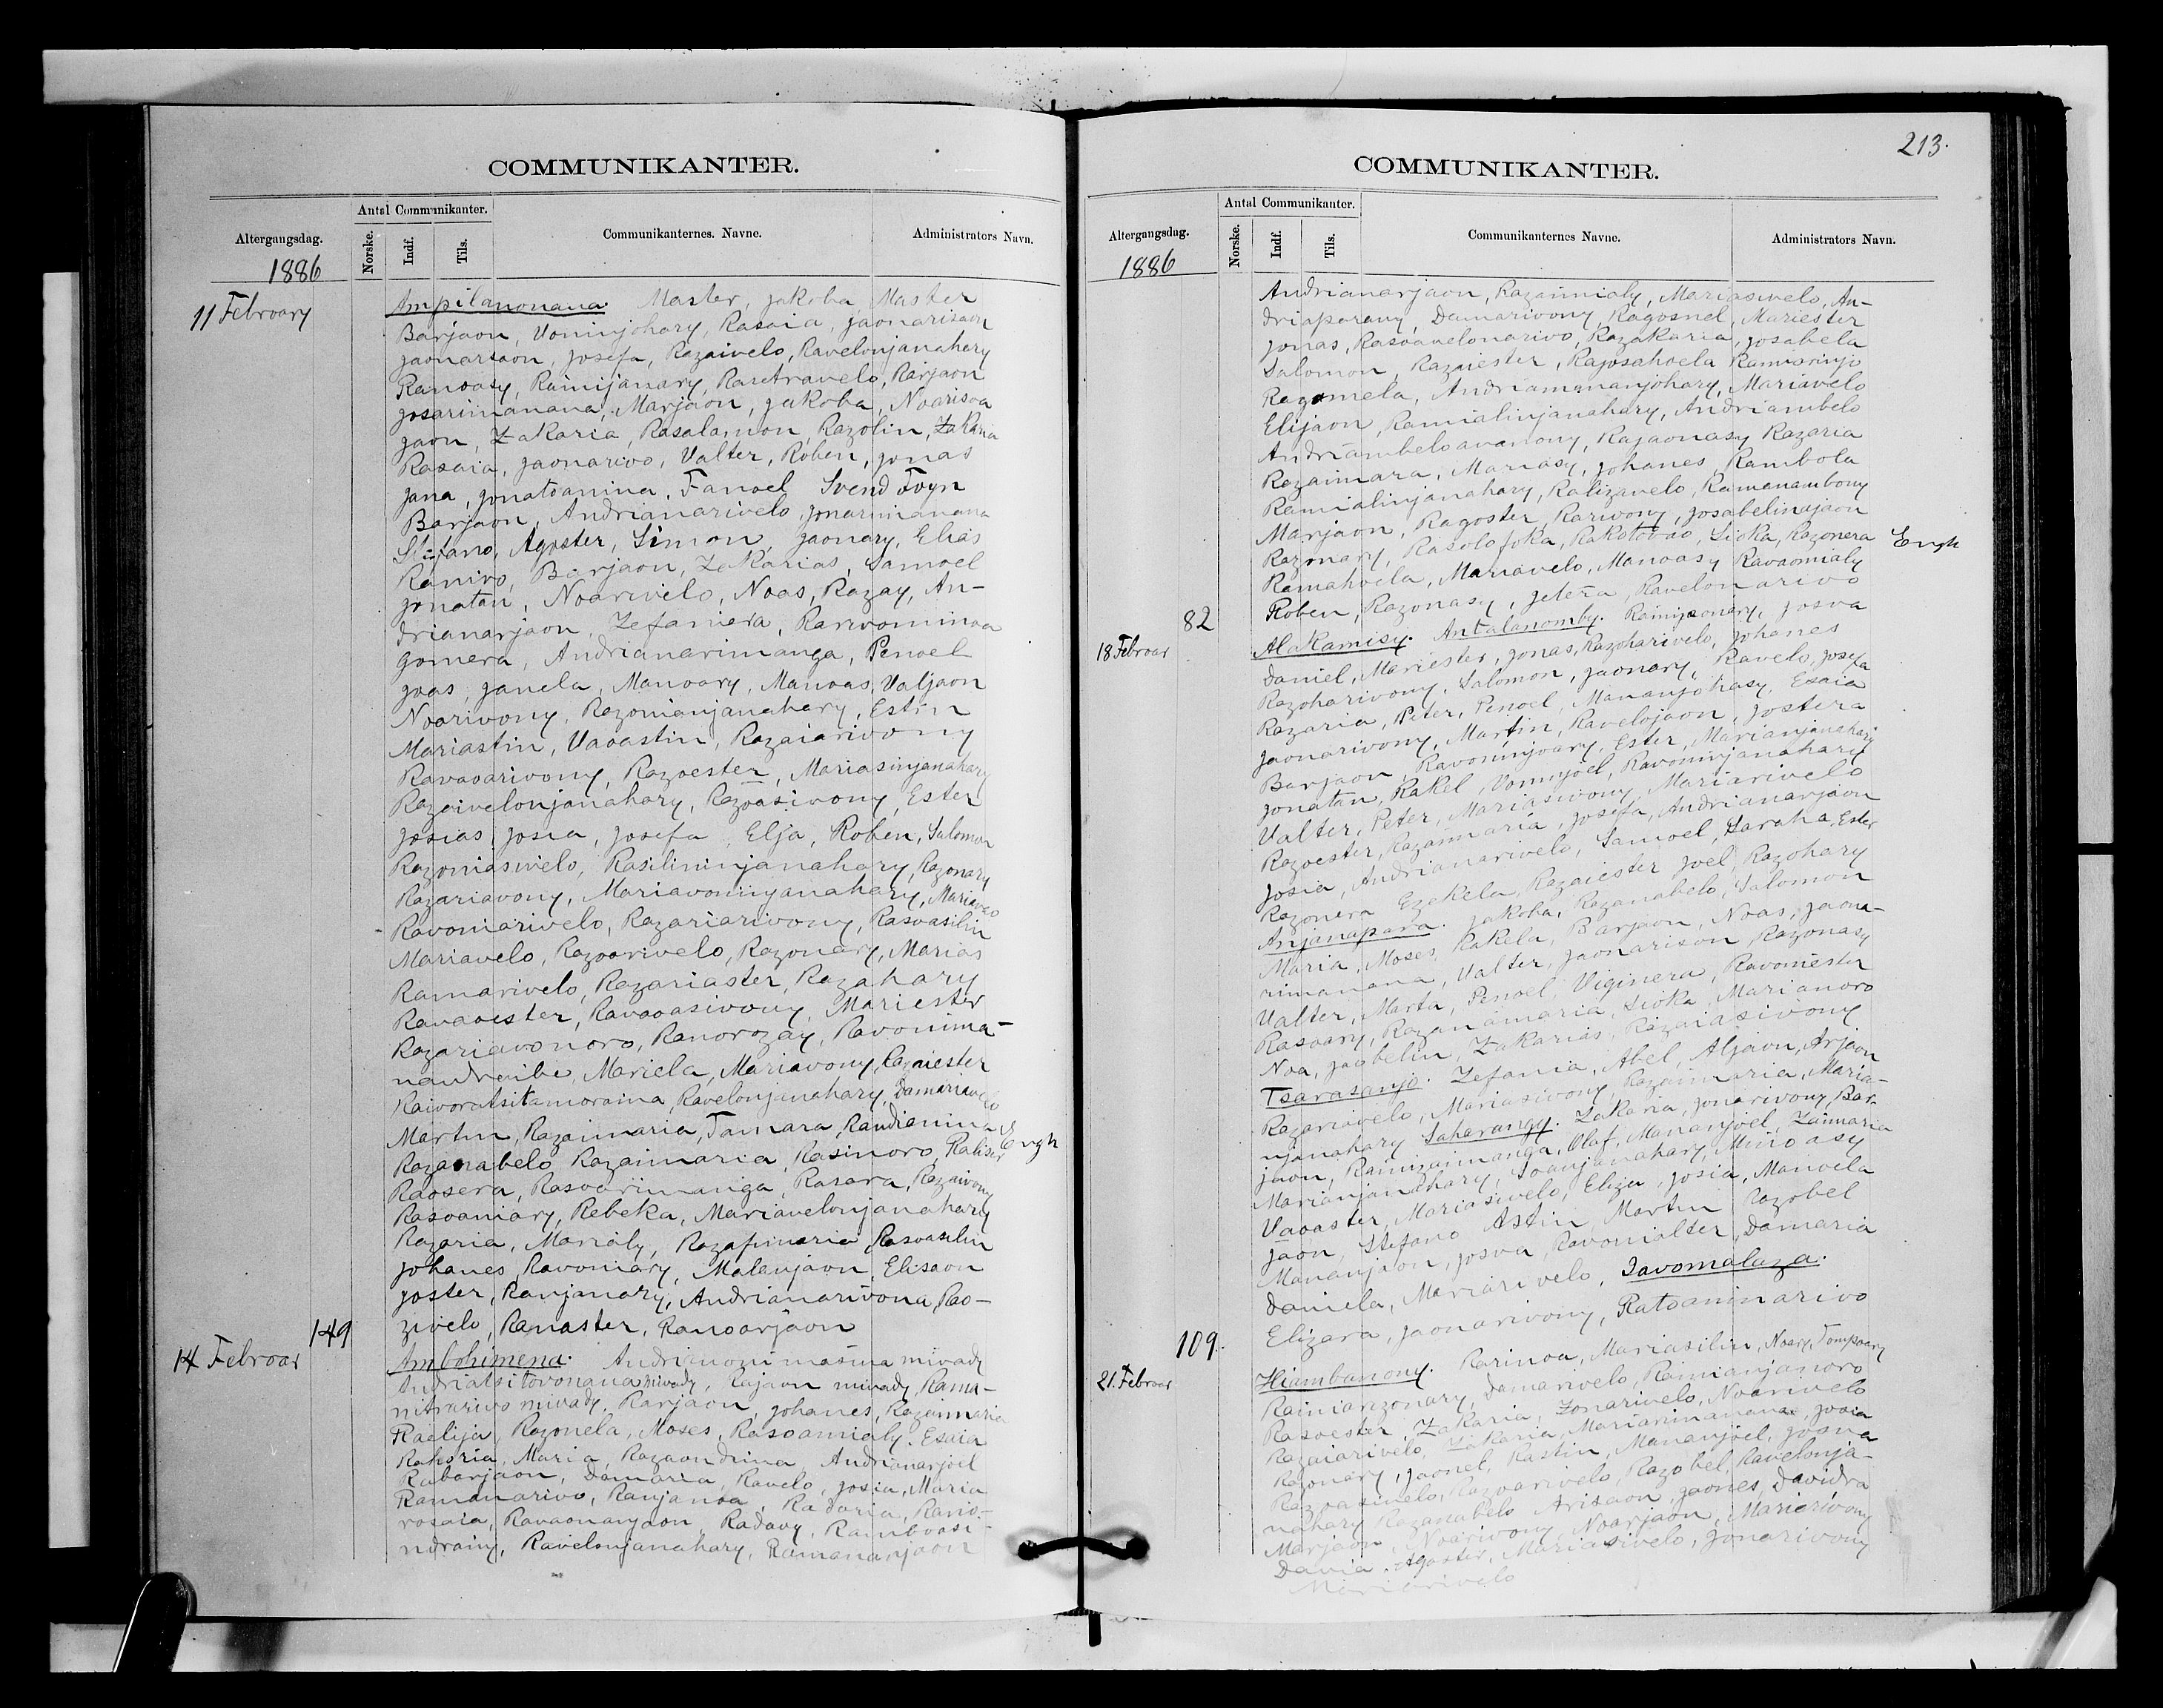 COMMUNIKANTER.
Altergangsdag. Antal Communikanter. Communikanternes. Navne. Administrators Navn.
Norske. Indf. Tils.
1886
11 February Ampilanonana Master, Jakoba, Master
Barjaon, Voninjohary, Rasaia, Jaonarisaon
Jaonarsaon, Josefa, Razaivelo, Ravelonjanahary
Ranoasy, Rainijanary, Rasetravelo, Rarjaon
Josarimanana, Marjaon, Jakoba, Noarisoa
Jaon, Zakaria, Rasalamon, Razolin, Zakaria
Rasaia, Jaonarivo, Valter, Roben, Jonas
Jana, Jonatoanina, Fanoel Svend Foyn
Barjaon, Andrianarivelo, Jonarimanana
Stefano, Agoster, Simon, Jaonary, Elias
Ranivo, Barjaon, Zakarias, Samoel
Jonatan, Noarivelo, Noas, Razay, An-
drianarjaon, Zefaniera, Rarivominoa
Gomera, Andrianarimanga, Penoel
Joas, Janela, Manoary, Manoas, Valjaon
Noarivony, Razonianjanahary, Estin
Mariastin, Vaoastin, Razaiarivony
Ravaoarivony, Razoester, Mariasinjanahary
Razaivelonjanahary, Razoasivony, Ester
Josias, Josia, Josefa, Elja, Roben, Salomon
Razoniasivelo, Rasilininjanahary, Razonary
Razariavony, Mariavoninjanahary, Mariavao
Ravoniarivelo, Razariarivony, Rasoasilin
Mariavelo, Razoarivelo, Razonary, Marias
Ramarivelo, Razariaster, Razahary
Ravaoester, Ravaoasivony, Mariester
Razariavonoro, Ranorozay, Ravonima-
nandraibe, Mariela, Mariavony, Razaiester
Raivoratsitamoraina, Ravelonjanahary, Damariavelo
Martin, Razaimaria, Tamara, Randianina Engh
Razanabelo Razaimaria, Rasinoro, Ralison
Raosera, Rasoarimanga, Rasara, Razaivony
Rasoaniary, Rebeka, Mariavelonjanahary
Razaria, Marialy, Razafimaria, Rasoasilin
Johanes, Ravoniary, Malenjaon, Elisaon
Joster, Ranjanary, Andrianarivona, Rao-
149 zivelo, Ranaster, Ranoarjaon
14 Februar Ambohimena. Andrianonimasina mivady
Andriatsitovonana mivady, Rajaon mivady, Rama-
nitrarivo mivady, Rarjaon, Johanes, Razaimaria
Raelija, Razonela, Moses, Rasoamialy, Esaia
Rakoria, Maria, Razaondrina, Andrianarjoel
Rabarjaon, Damaria, Ravelo, Josia, Maria
Ramanarivo, Ranjanoa, Radaria, Rano-
rosaia, Ravaonanjaon, Radavy, Ramboasi-
ndrainy, Ravelonjanahary, Ramananjaon
213.
COMMUNIKANTER.
Altergangsdag. Antal Communikanter. Communikanternes Navne. Administrators Navn.
Norske. Indf. Tils.
1886
Andrianarjaon, Razaimialy, Mariasivelo, An-
driaparany, Damarivony, Ragosnel, Mariester
Jonas, Rasoavelonarivo, Razakaria, Josabela
Salomon, Razaiester, Rajosahoela Ramiarinjo
Ragomela, Andriamananjohary, Mariavelo
Elijaon, Ramialinjanahary, Andriambelo
Andriambeloavanony, Rajaonasy Razaria
Razaimara, Mariasy, Johanes, Rambola
Ramialinjanahary, Ralizavelo, Ramanambony
Marjaon, Ragoster, Rarivony, Josabelinajaon
Razonary, Rasolofoka, Rakotovao, Sioka, Razonera Engh
Ramahoela, Mariavelo, Manoasy Ravaomialy
82 Roben, Razonasy, Jetera, Ravelonarivo
18 Februar Alakamisy. Antalanomby. Rainizonary, Josva
Daniel, Mariester, Jonas, Razoharivelo, Johanes
Razoharivony, Salomon, Jaonary, Ravelo, Josefa
Razaria, Peter, Penoel, Mananjohasy, Esaia
Jaonarivony, Martin, Ravelojaon, Jostera
Barjaon, Ravoninjoary, Ester, Marianjanahary
Jonatan, Rakel, Voninjoel, Ravoninjanahary
Valter, Peter, Mariasivony, Mariarivelo
Razoester, Razaimaria, Josefa, Andrianarjaon
Josia, Andrianarivelo, Samoel, Saraha, Ester
Razonera Ezekela, Razaiester Joel, Razohary
Anjanapara. Jakoba, Razanabelo, Salomon
Maria, Moses, Rakela, Barjaon, Noas, Jaona-
rimanana, Valter, Jaonarison Razonasy
Valter, Marta, Penoel, Viginera, Ravoniester
Rasoary, Razanamaria, Sioka, Marianoro
Noa, Jaobelin, Zakarias, Razaiasivony
Tsarasanjo. Zefania, Abel, Aljaon, Arjaon
Razarivelo, Mariasivony, Razaimaria, Maria-
njanahary Saharangy. Zakaria, Jonarivony, Bar-
jaon, Rainizaimanga, Olaf, Mananjoel, Zaimaria
Marianjanahary, Soanjanahary, Minoasy
Vaoaster, Mariasivelo, Eliza, Josia, Manoela
Jaon, Stefano Astin, Martin Razobel
Mananjaon, Josva, Ravonialter, Damaria
Daniela, Mariarivelo, Davomalaza.
109. Elizara, Jaonarivony, Ratoaninarivo
21. Februar Hiambanony. Rarinoa, Mariasilin, Noary, Tompoary
Rainianzonary, Damarivelo, Ramianjanoro
Rasoester, Zakaria, Zonarivelo, Noarivelo
Razaiarivelo, Zakaria, Mariarimanana, Josia
Razonary, Jaonet, Rastin, Mananjoel, Josva
Razoasivelo, Razoarivelo, Razobel, Ravelonja-
nahary Razanabelo Arisaon, Jaones, Davidra
Marjaon, Noarivony, Noarjaon, Mariarivony
Davia, Agoster, Mariasivelo, Jonarivony
Mariarivelo